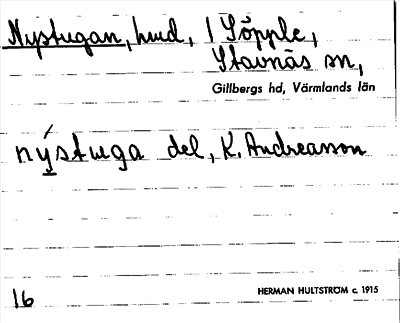 Nystugan, hmd, 1 Söpple,
Stavnäs sn,
Gillbergs hd, Värmlands län
nýstuga del, K. Andreasson
16
HERMAN HULTSTRÖM c. 1915